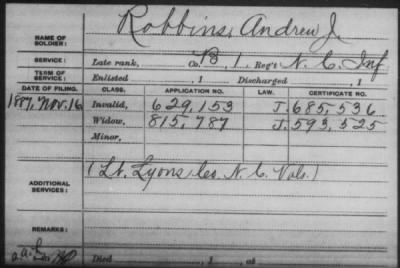 NAME OF SOLDIER: Robbins, Andrew J.
SERVICE: Late rank, Co. B, 1, Reg't N. C. Inf
TERM OF SERVICE: Enlisted , 1 Discharged , 1
DATE OF FILING. CLASS. APPLICATION NO. LAW. CERTIFICATE NO.
1887, Nov. 16 Invalid, 629,153 J. 685,536
Widow, 815,787 J. 593,525
Minor,
ADDITIONAL SERVICES: (Lt. Lyons Co. N. C. Vols.)
REMARKS:
Died , 1 , at